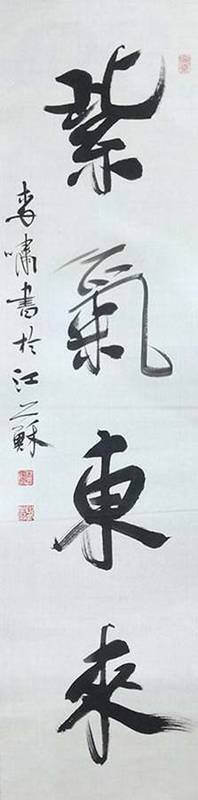 紫氣東來
李嘯書於江之蘇